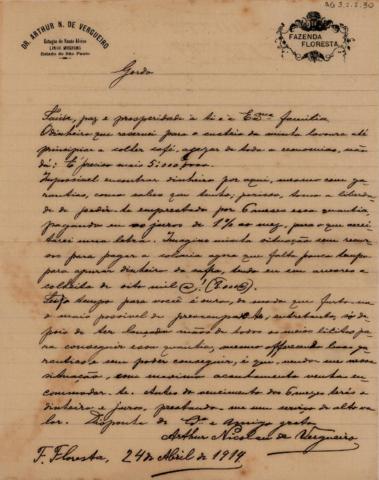 AG 3.2.2.30
DR. ARTHUR N. DE VERGUEIRO
Estação de Nova Africa
LINHA MOGYANA
Estado de São Paulo
FAZENDA
FLORESTA
Gerdo
Saúde, paz e prosperidade à ti e á Exma familia
O dinheiro que reservei para o custeio da minha lavoura até
principiar a colher café, apezar de toda a economia, não
dá! É preciso mais 5:000$000.
Impossivel encontrar dinheiro por aqui, mesmo com ga-
rantias, como sabes que tenho; porisso, tomo a liberda-
de de pedir-te emprestado por 6 mezes essa quantia,
pagando eu os juros de 1% ao mez, para o que accei-
tarei uma letra. Imagine minha situação sem recur-
sos para pagar a colonia agora que falta pouco tempo
para apurar dinheiro da safra, tendo eu em arvores a
colheita de oito mil @! (8000@).
tempo para você é ouro, de modo que furto-me
o mais possivel de preoccupal-o, entretanto, só de-
pois de ter lançado mão de todos os meios licitos pa-
ra conseguir essa quantia, mesmo offerecendo boas ga-
rantias e sem poder conseguir, é que, vendo-me nessa
situação, com maximo acanhamento venho en-
commodar-te. Antes do vencimento dos 6 mezes terás o
dinheiro e juros, prestando-me um serviço de alto va-
lor. Disponha do Cro e Amigo grato
Arthur Nicolau de Vergueiro
F. Floresta, 24 de Abril de 1914